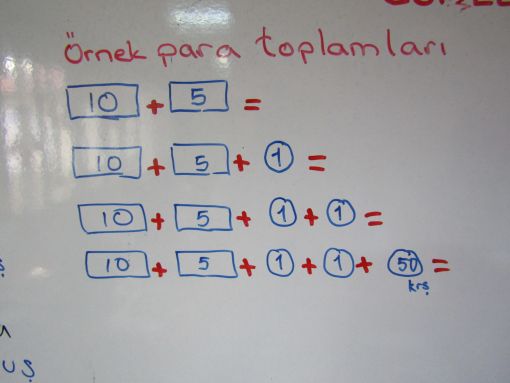 Örnek para toplamları
10 + 5 =
10 + 5 + 1 =
10 + 5 + 1 + 1 =
10 + 5 + 1 + 1 + 50 =
krş